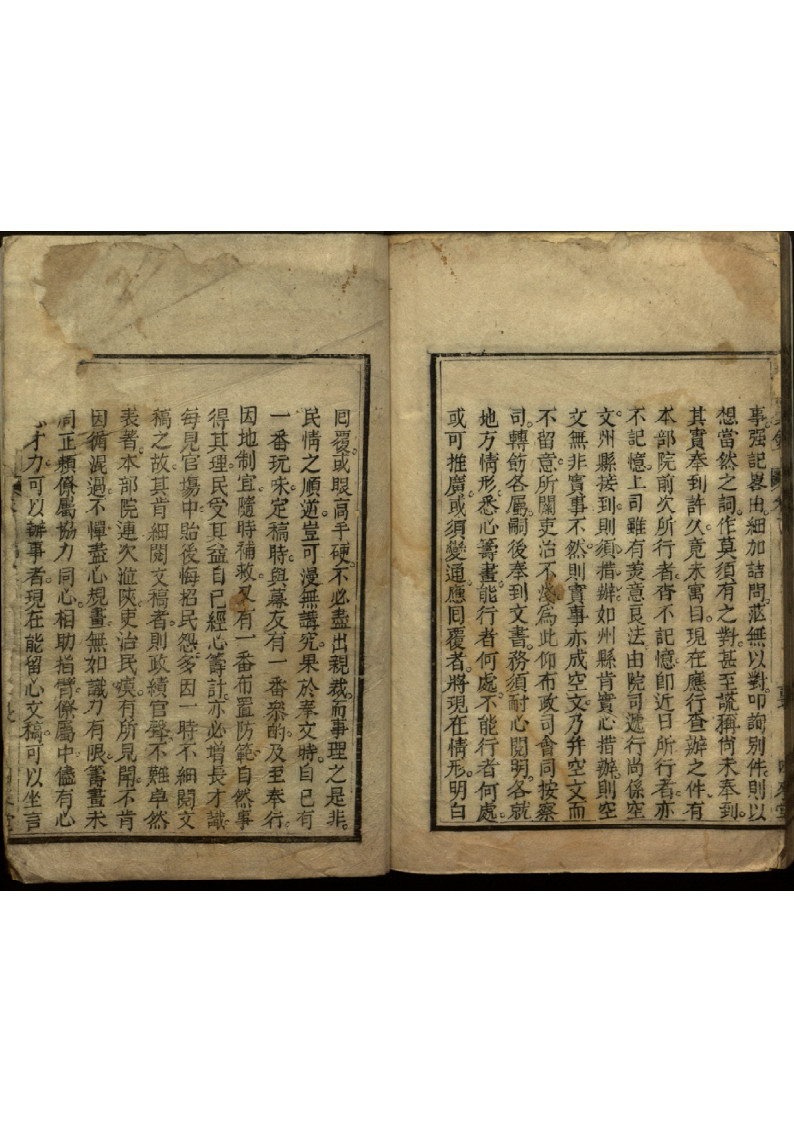 事強記畧由細加詰問茫無以對叩詢別件則以
想當然之詞作莫須有之對甚至謊稱尚未奉到
其實奉到許久竟未寓目現在應行查辦之件有
本部院前次所行者杳不記憶卽近日所行者亦
不記憶上司雖有美意良法由院司遞行尚係空
文州縣接到則須措辦如州縣肯實心措辦則空
文無非實事不然則實事亦成空文乃幷空文而
不留意所關吏治不淺為此仰布政司會同按察
司轉飭各屬嗣後奉到文書務須耐心閱明各就
地方情形悉心籌畫能行者何處不能行者何處
或可推廣或須變通應囘覆者將現在情形明白
囘覆或眼高手硬不必盡出親裁而事理之是非
民情之順逆豈可漫無講究果於奉文時自已有
一番玩味定稿時與幕友有一番㕘酌及至奉行
因地制宜隨時補救又有一番布置防範自然事
得其理民受其益自已經心籌計亦必增長才識
每見官塲中貽後悔招民怨多因一時不細閱文
稿之故其肯細閱文稿者則政績官聲不難卓然
表著本部院連次涖陝吏治民瘼有所見聞不肯
因循混過不憚盡心規畫無如識力有限籌畫未
周正賴僚屬協力同心相助指臂僚屬中儘有心
才力可以辦事者現在能留心文稿可以坐言